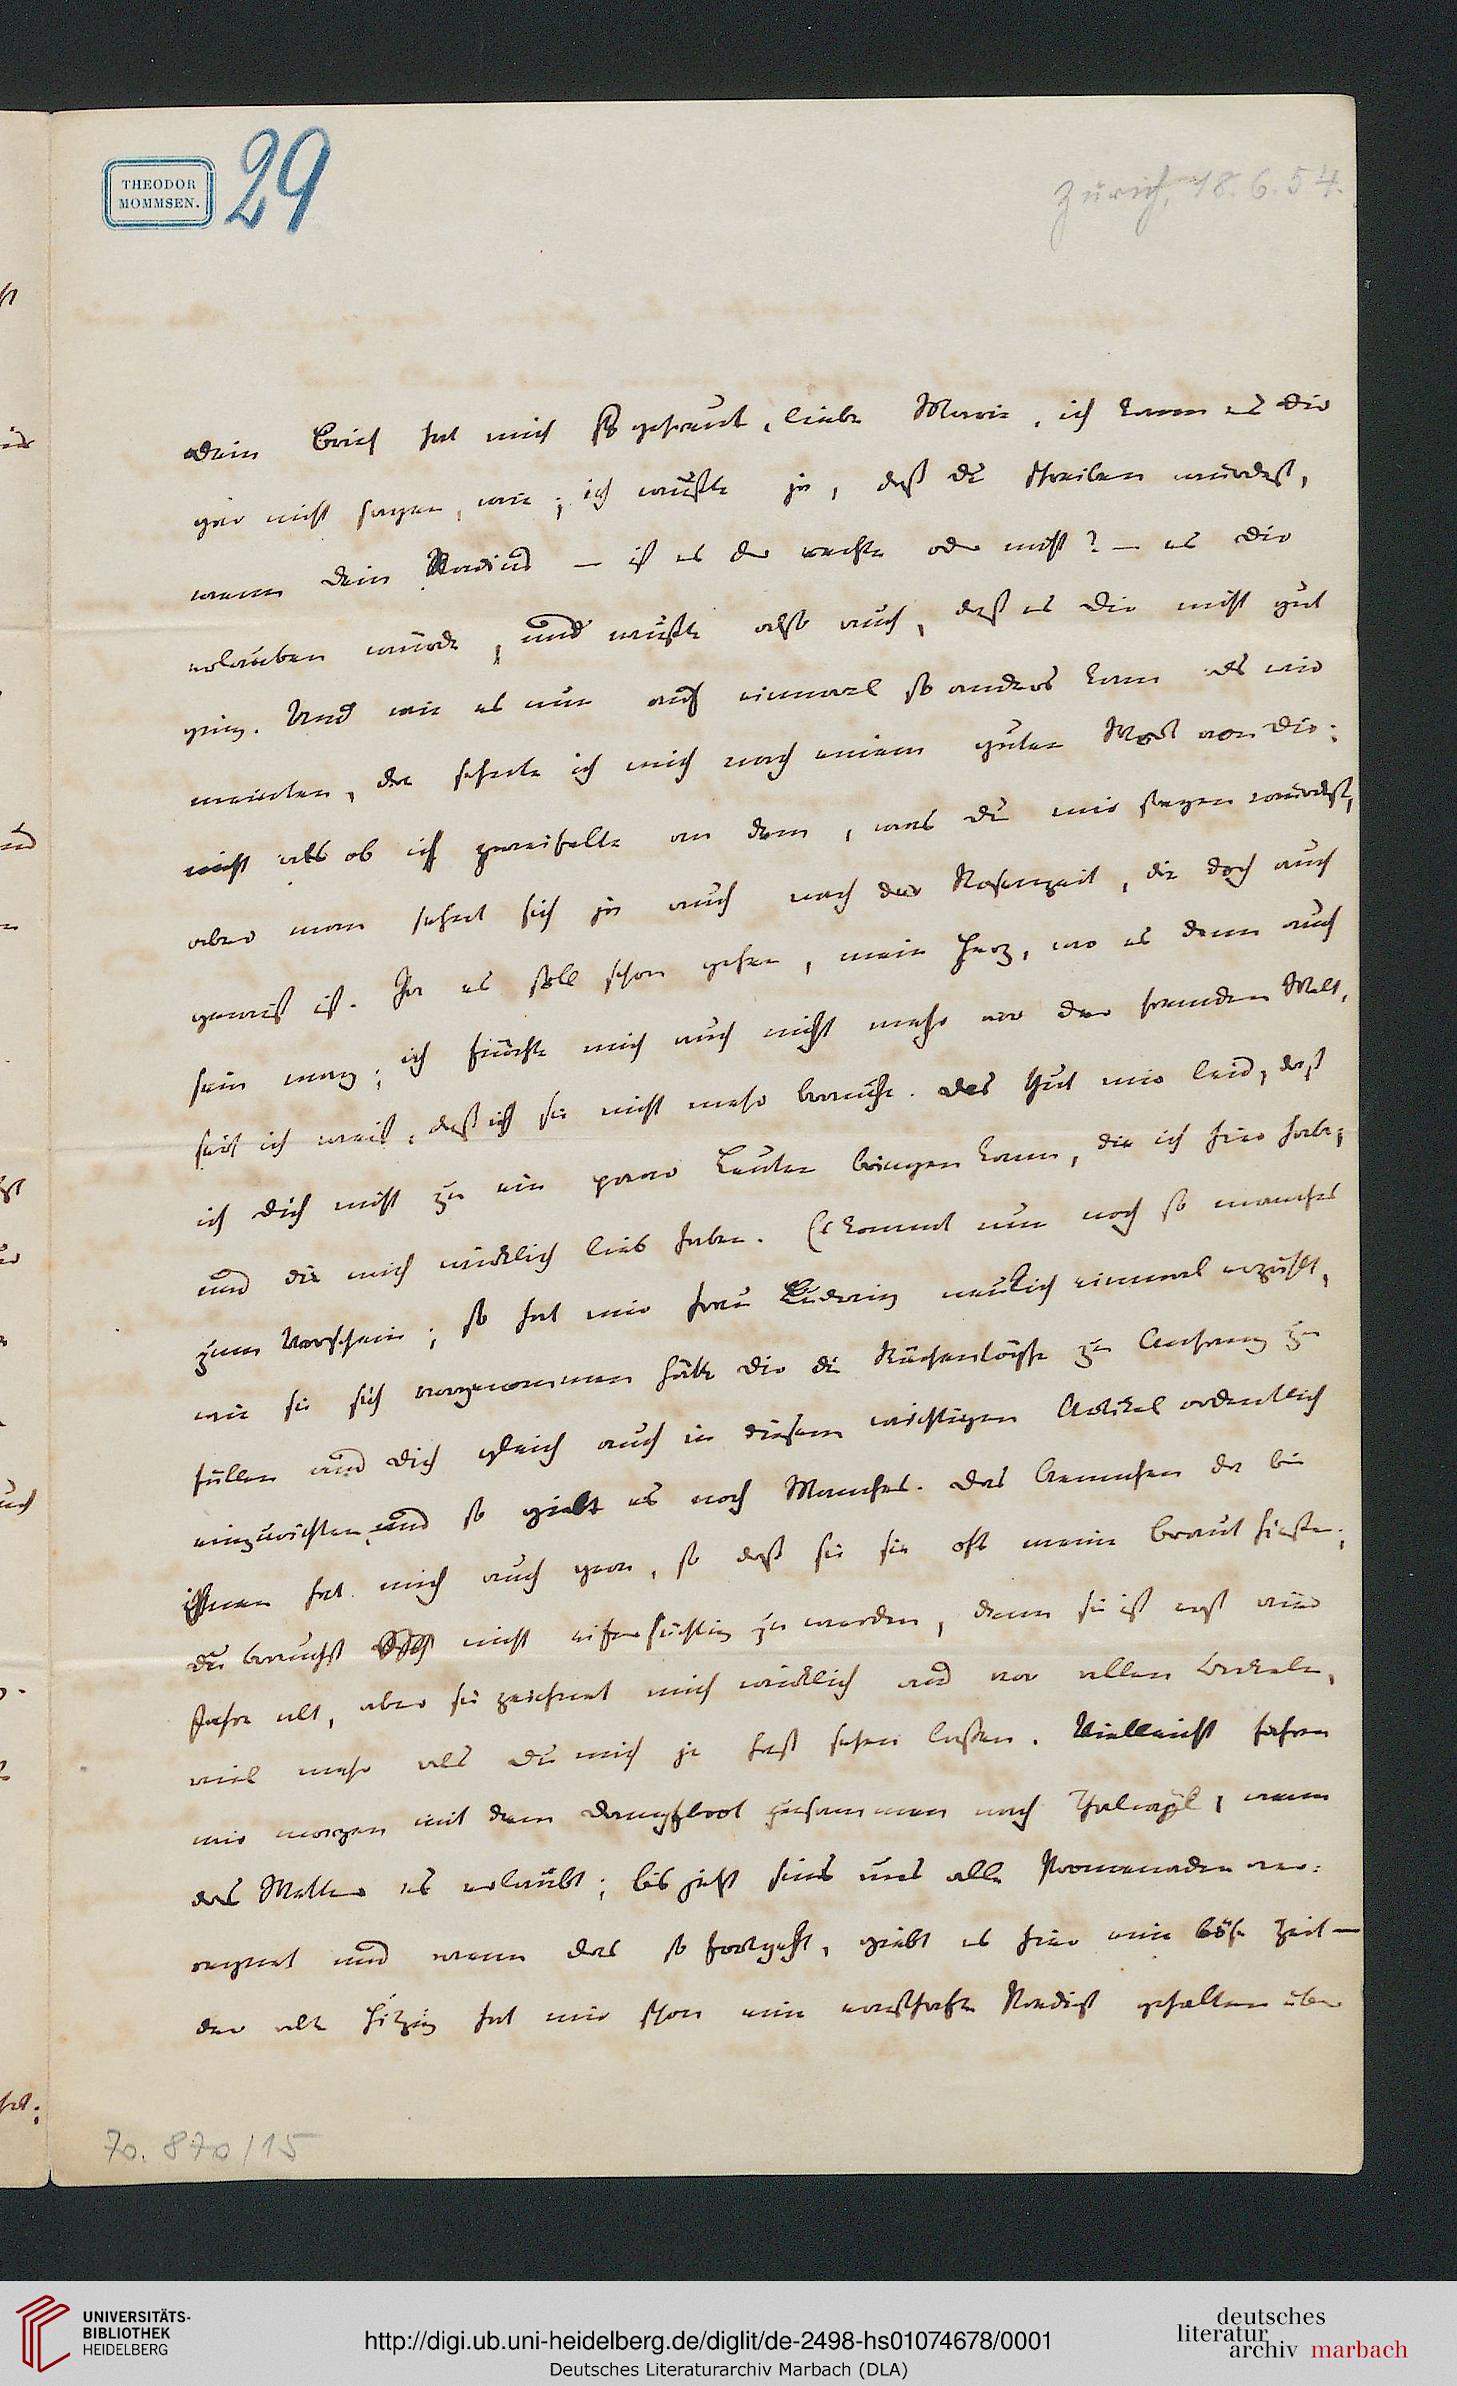 THEODOR
MOMMSEN.
29
Zürich, 18. 6. 54.
Dein Brief hat mich so gefreut, liebe Marie, ich kann es Dir
gar nicht sagen, wie; ich wußte ja, daß du schreiben würdest,
wenn Dein — ist es der rechte oder nicht? — es Dir
erlauben würde, und wußte also auch, daß es Dir nicht gut
ging. Und wie es nun auf einmal so anders kam als wir
meinten, da sehnte ich mich nach einem guten Wort von Dir;
nicht als ob ich zweifelte an dem, was Du mir sagen würdest,
aber man sehnt sich ja auch nach der Rosenzeit, die doch auch
gewiß ist. Ja es soll schon gehen, mein Herz, wo es denn auch
sein mag; ich fürchte mich auch nicht mehr vor der fremden Welt,
seit ich weiß, daß ich sie nicht mehr brauche. Das thut mir leid, daß
ich Dich nicht zu ein paar Leuten bringen kann, die ich hier habe,
und die mich wirklich lieb haben. Es kommt nun noch so manches
zum Vorschein; so hat mir Frau Ludwig neulich einmal erzählt,
wie sie sich vorgenommen hätte Dir die Küchentöpfe zu Anfang zu
füllen und Dich gleich auch in diesem wichtigen Artikel ordentlich
einzurichten und so giebt es noch Manches. Das Aennchen da bei
ihnen hat mich auch gern, so daß sie sie oft meine Braut hießen;
Du brauchst nicht eifersüchtig zu werden, denn sie ist erst vier
Jahre alt, aber sie zeichnet mich wirklich aus vor allen Onkeln,
viel mehr als Du mich je hast sehen lassen. Vielleicht fahren
wir morgen mit dem Dampfboot zusammen nach Thalwyl, wenn
das Wetter es erlaubt; bis jetzt sind uns alle Promenaden ver-
regnet und wenn das so fortgeht, giebt es hier eine böse Zeit —
der alte Hitzig hat mir schon eine ernsthafte Predigt gehalten über
70. 870/15
UNIVERSITÄTS-
BIBLIOTHEK
HEIDELBERG
http://digi.ub.uni-heidelberg.de/diglit/de-2498-hs01074678/0001
Deutsches Literaturarchiv Marbach (DLA)
deutsches
literatur
archiv marbach